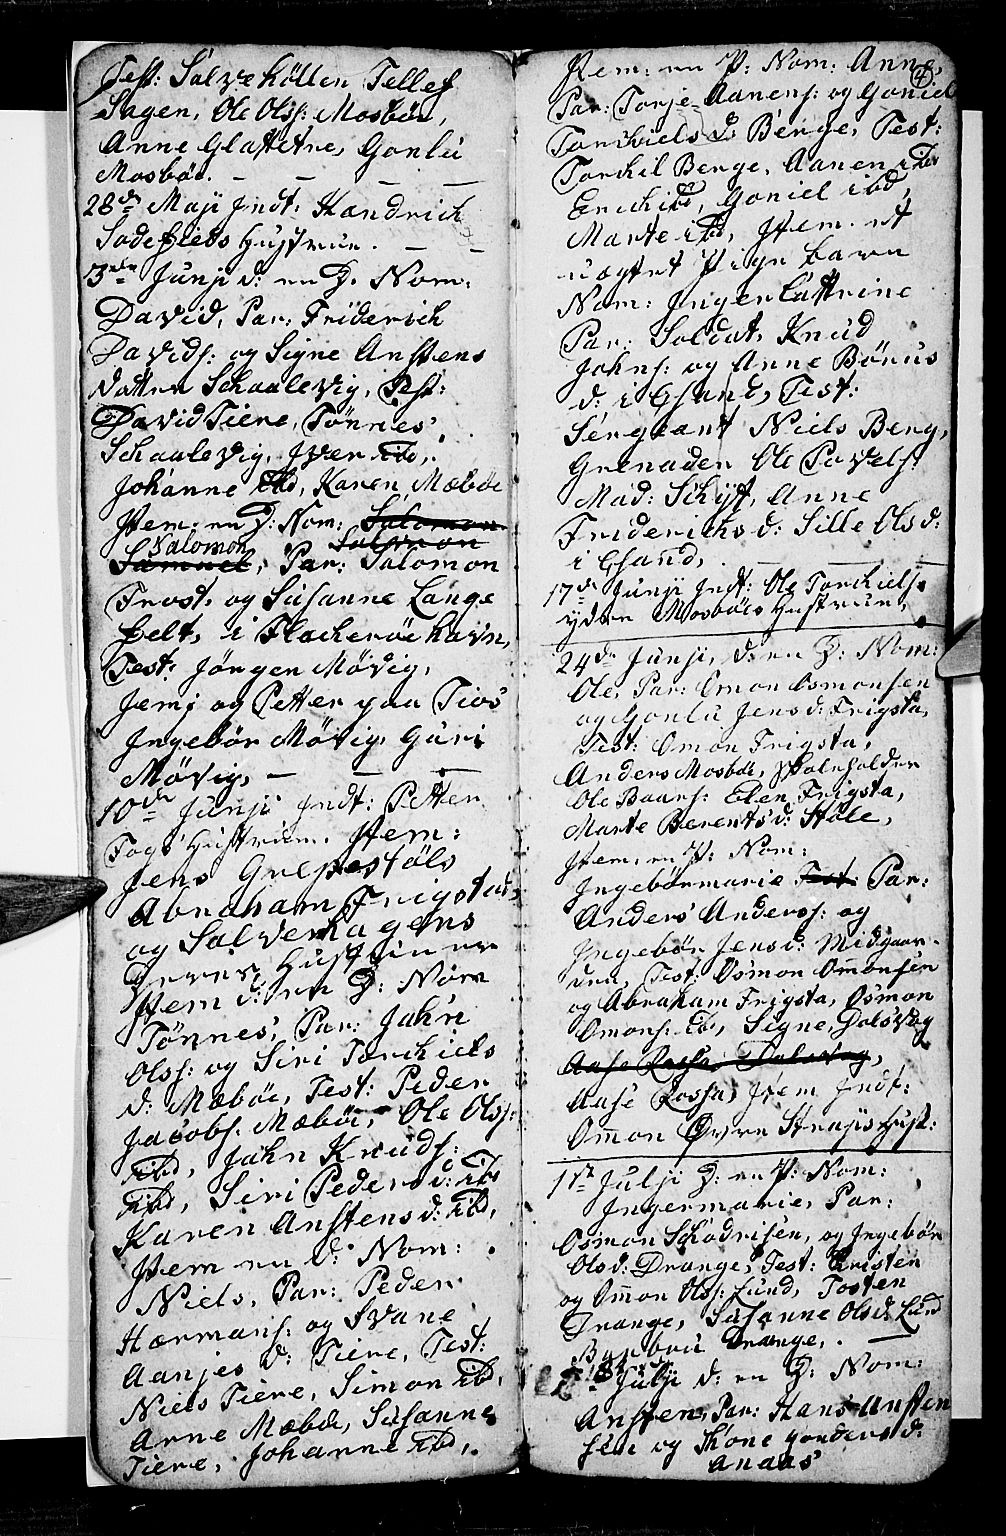 Test: Salve Kolten Tellef
Hagen, Ole Olss: Mosbøe,
Anne Glattetre, Gonlu
Mosbøe. — — — —
28de Maji Indt: Hændrich
Sadefields Hustrue. — —
3die Junji d: en D. Nom:
David, Par: Friderich
Davids: og Signe Anstens
datter Schaalevig, Test:
David Tiere, Tönnes
Schaalevig, Iver ibd,
Johanne ibd, Karen Mæbøe
Item: en D: Nom: Salomon
Salomon Salomon
Samuel, Par: Salomon
Trost, og Susanne Lange
felt, i Flacherøe havn,
Test: Jörgen Mövig,
Jemj og Petter paa Tios
Ingebör Mövig, Guri
Mövig, — — —
10de Junji Indt: Petter
Fogs Hustrue. Item:
Jens Grepstöls
Abraham Frigstads
og Salve Hagens
Hustruer
Item d: en D: Nom
Tönnes, Par: Jahn
Olss: og Siri Torchiels
d: Mæbøe, Test: Peder
Jacobs. Mæbøe, Ole Olss:
ibd, Jahn Knuds:
ibd, Siri Peders d: ibd
Karen Anstens d: ibd,
Item en D: Nom:
Niels, Par: Peder
Hærmans: og Svane
Aanjes d: Tiere, Test:
Niels Tiere, Simon ibd,
Arne Mæbøe, Susanne
Tiere, Johanne ibd,
4
Item: en P: Nom: Anne,
Par: Torje Aanens: og Goniel
Torchiels d: Berge, Test:
Torchil Berge, Aanen ibd
Erich ibd, Goniel ibd,
Marte ibd, Item et
uægtet Pige barn
Nom: Inger Cathrine
Par: Soldat, Knud
Johns: og Anne Börus
d: i Gsand, Test:
Sergeant Niels Berg,
Grenader Ole Povels:
Mad: Schyt, Anne
Friderichs d: Sille Ols d:
i Gsand, — — —
17de Junji Indt: Ole Torchiels:
yder Mosbøes Hustrue,
24de Junji, d: en D: Nom:
Ole, Par: Omon Osmonsen
og Gonlu Jens d: Frigsta,
Test: Omon Frigsta,
Anders Mosbøe,
Ole Baars: Elen Frigsta,
Marte Berents d: Støle,
Item: en P: Nom:
Ingebörmarie Test: Par:
Anders Anderss: og
Ingebör Jens d: Midgaar-
den, Test: Osmon Omonsen
og Abraham Frigsta, Osmon
Omons: ib, Signe Dalsvog
Aase Rossa, Dalsvog,
Aase Rossa, Item Indt:
Omon Øvre Strajs Hust:
1te Julji D: en P: Nom:
Ingermarie, Par:
Osmon Schodvisen, og Ingebör
Ols d: Drange, Test: Christen
og Omon Olss: Lund, Tosten
Drange, Susanne Ols d: Lund
Barbru Drange, —
8de Julji d: en D: Nom:
Ansten, Par: Hans Ansten
sen og Thone Gonders d:
Anaas